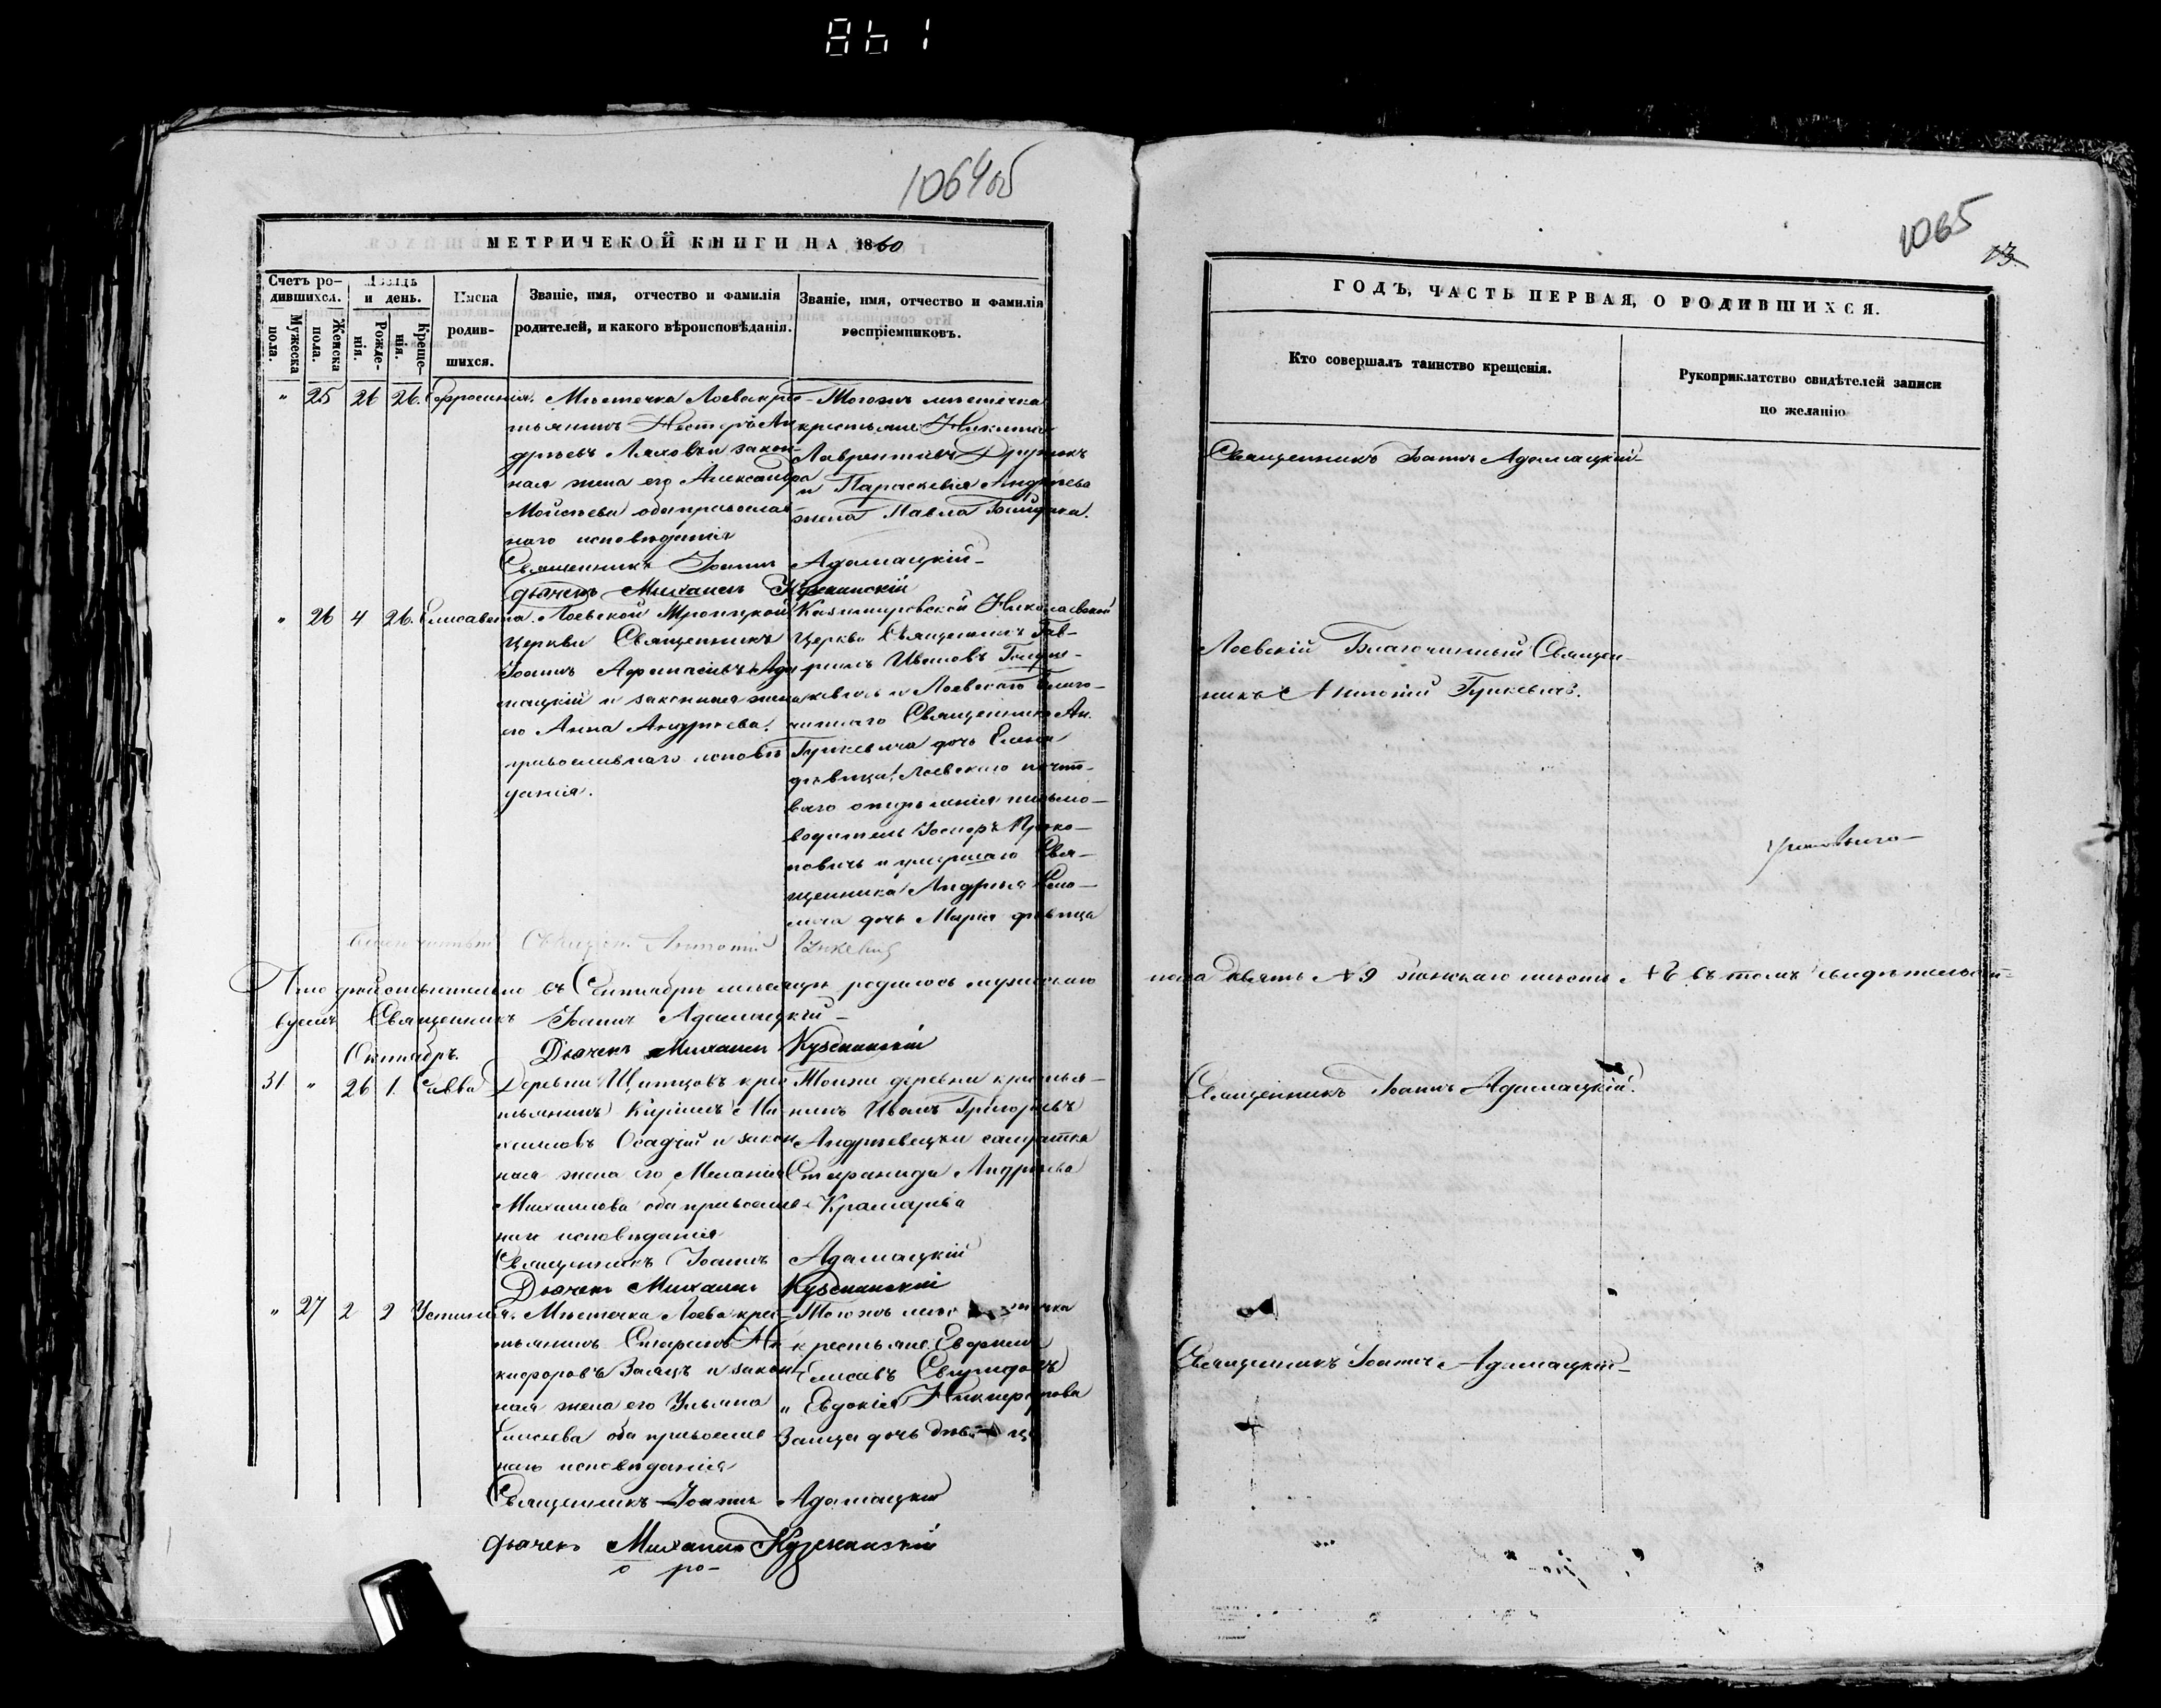 861
1064об
МЕТРИЧЕКОЙ КНИГИ НА 1860
Счетъ ро-
дившихся.
Мужеска
пола.
Женска
пола.
и день.
Рожде-
нія.
Креще-
нія.
Имена
родив-
шихся.
Званіе, имя, отчество и фамилія
родителей, и какого вѣроисповѣданія.
Званіе, имя, отчество и фамилія
воспріемниковъ.
" 25 26 26. Ефросинія.
Мѣстечка Лоева крес-
тьянинъ Несторъ Ан
дреевъ Ляховка закон-
ная жена его Александра
Моисеева оба православ-
наго исповѣданія
Тогожъ мѣстечка
крестьяне Никита
Лаврентіевъ
и Параскевія Андреева
жена Павла
Священникъ Іоаннъ Адамацкій
дьячекъ Михаилъ
" 26 4 26. Елисавета.
Лоевской Троицкой
церкви Священникъ
Іоаннъ Афанасіевъ Ада
мацкій и законная жена
его Анна Андреева
православнаго исповѣ
данія.
Казимировской Николаевской
церкви Священникъ Гав-
ріилъ Ивановъ
и Лоевскаго Благо-
чиннаго Священника Ан.
дочь Елена
дѣвица, Лоевскаго
отдѣленія письмо-
водитель Іосифъ Проко-
повичъ и умершаго Свя-
щенника Андрея
дочь Марія дѣвица
Священ. Антоній
Что дѣйствительно въ Сентябрѣ мѣсяцѣ родилось мужескаго
вуемъ Священникъ Іоаннъ Адамацкій
Октябрь. Дьячекъ Михаилъ
31 " 26 1. Савва
Деревни крес
тьянинъ Кириллъ Ми
хаиловъ Осадчій и закон
ная жена его Меланія
Михаилова оба православ
наго исповѣданія
Тойже деревни крестья-
нинъ Иванъ Григорьевъ
и солдатка
Стефанида Андреева
Крамарева
Священникъ Іоаннъ Адамацкій
Дьячекъ Михаилъ
" 27 2 2 Устинія.
Мѣстечка Лоева крес-
тьянинъ Ни
кифоровъ Заяцъ и закон
ная жена его Ульяна
Елисеева оба православ
наго исповѣданія
Тогожъ
крестьяне
" Евдокія Никифорова
Зайца дочь
Священникъ Іоаннъ Адамацкій
дьячекъ Михаилъ
1065
13
ГОДЪ, ЧАСТЬ ПЕРВАЯ, О РОДИВШИХСЯ.
Кто совершалъ таинство крещенія.
Рукоприклатство свидѣтелей записи
по желанію
Священникъ Іоаннъ Адамацкій
Лоевскій Благочинный Священ-
никъ Антоній
пола девять № 9 женскаго шесть № 6 въ томъ свидѣтельст-
Священникъ Іоаннъ Адамацкій.
Священникъ Іоаннъ Адамацкій